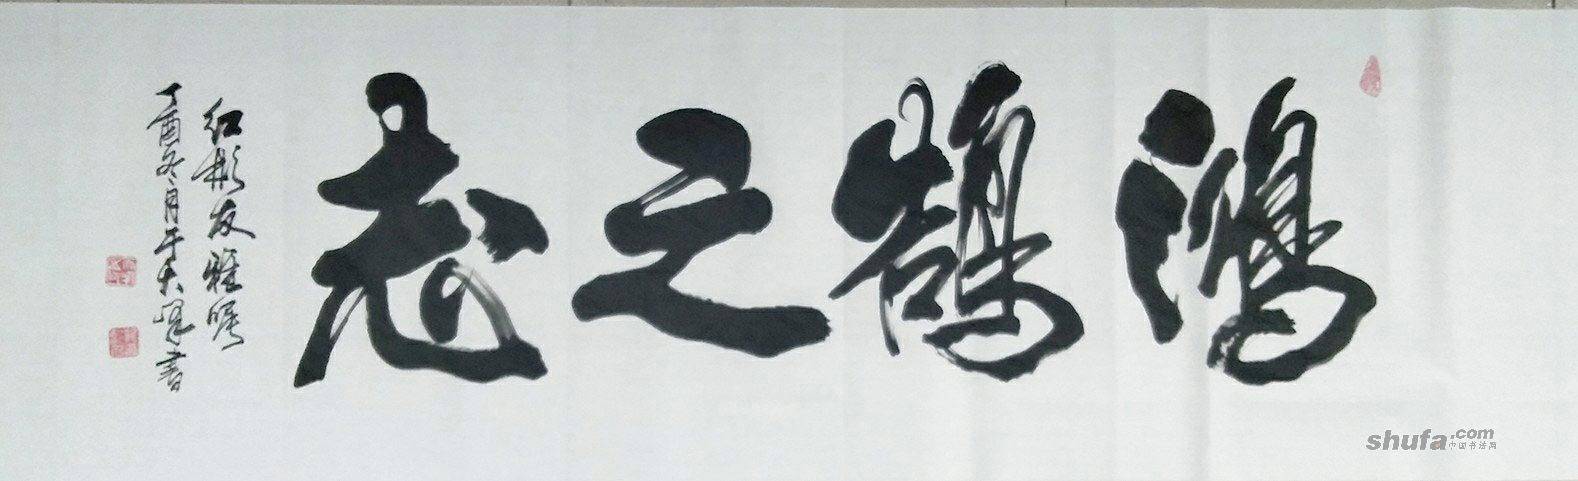 鸿鹄之志
红彬友雅嘱
丁酉冬月于大渡书
shufa.com
中国书法网